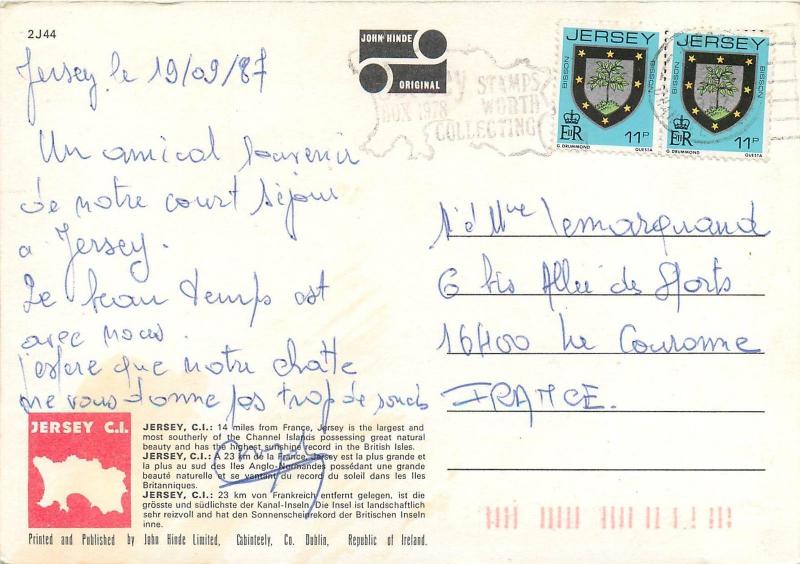 2J44
JOHN HINDE
ORIGINAL
STAMPS
BOX 1978 WORTH
COLLECTING
JERSEY
BISSON
BISSON
EIIR
11P
G. DRUMMOND
QUESTA
JERSEY
BISSON
BISSON
EIIR
11P
G. DRUMMOND
QUESTA
Jersey le 19/09/87
Un amical souvenir
de notre court séjour
a Jersey.
Le beau temps est
avec nous.
j'espère que notre chatte
ne vous donne pas trop de soucis
Mme lemarquand
6 bis Allée des Sports
16400 La Couronne
FRANCE.
JERSEY C.I.
JERSEY, C.I.: 14 miles from France, Jersey is the largest and
most southerly of the Channel Islands possessing great natural
beauty and has the highest sunshine record in the British Isles.
JERSEY, C.I.: A 23 km de la France, Jersey est la plus grande et
la plus au sud des Iles Anglo-Normandes possédant une grande
beauté naturelle et se vantant du record du soleil dans les Iles
Britanniques.
JERSEY, C.I.: 23 km von Frankreich entfernt gelegen, ist die
grösste und südlichste der Kanal-Inseln. Die Insel ist landschaftlich
sehr reizvoll und hat den Sonnenscheinrekord der Britischen Inseln
inne.
Printed and Published by John Hinde Limited, Cabinteely, Co. Dublin, Republic of Ireland.